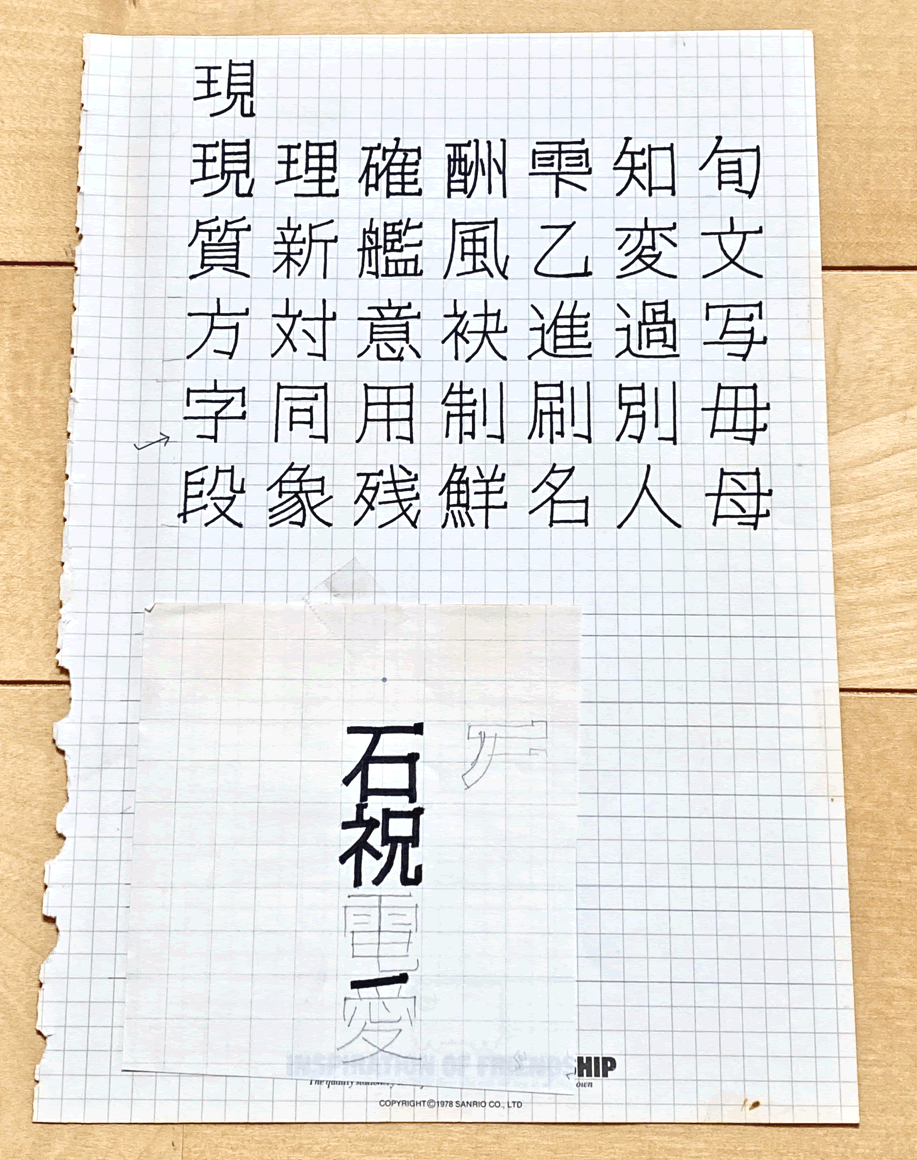 現
現理確酬雫知旬
質新艦風乙変文
方対意袂進過写
字同用制刷別毋
段象残鮮名人母
石
祝
電
愛
INSPIRATION OF FRIENDSHIP
The quality stationery own
COPYRIGHT©1978 SANRIO CO., LTD